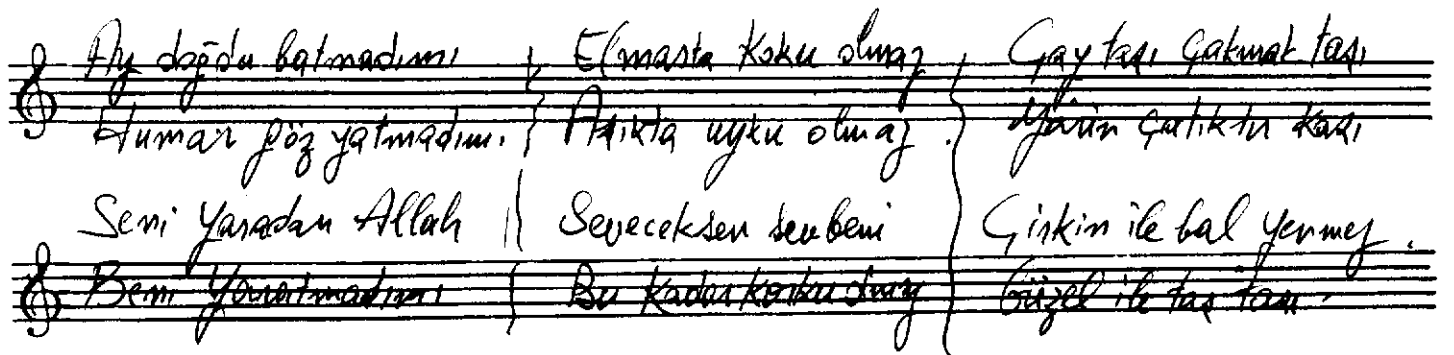 Ay doğdu batmadımı
Humar göz yatmadımı.
Seni Yaradan Allah
Beni Yaratmadımı
Elmasta Koku olmaz
Aşıkta uyku olmaz.
Seveceksen sev beni
Bu Kadar korku olmaz
Çay taşı Çakmak taşı
Yârin Çatıktır Kaşı
Çirkin ile bal Yenmez.
Güzel ile taş taşı.